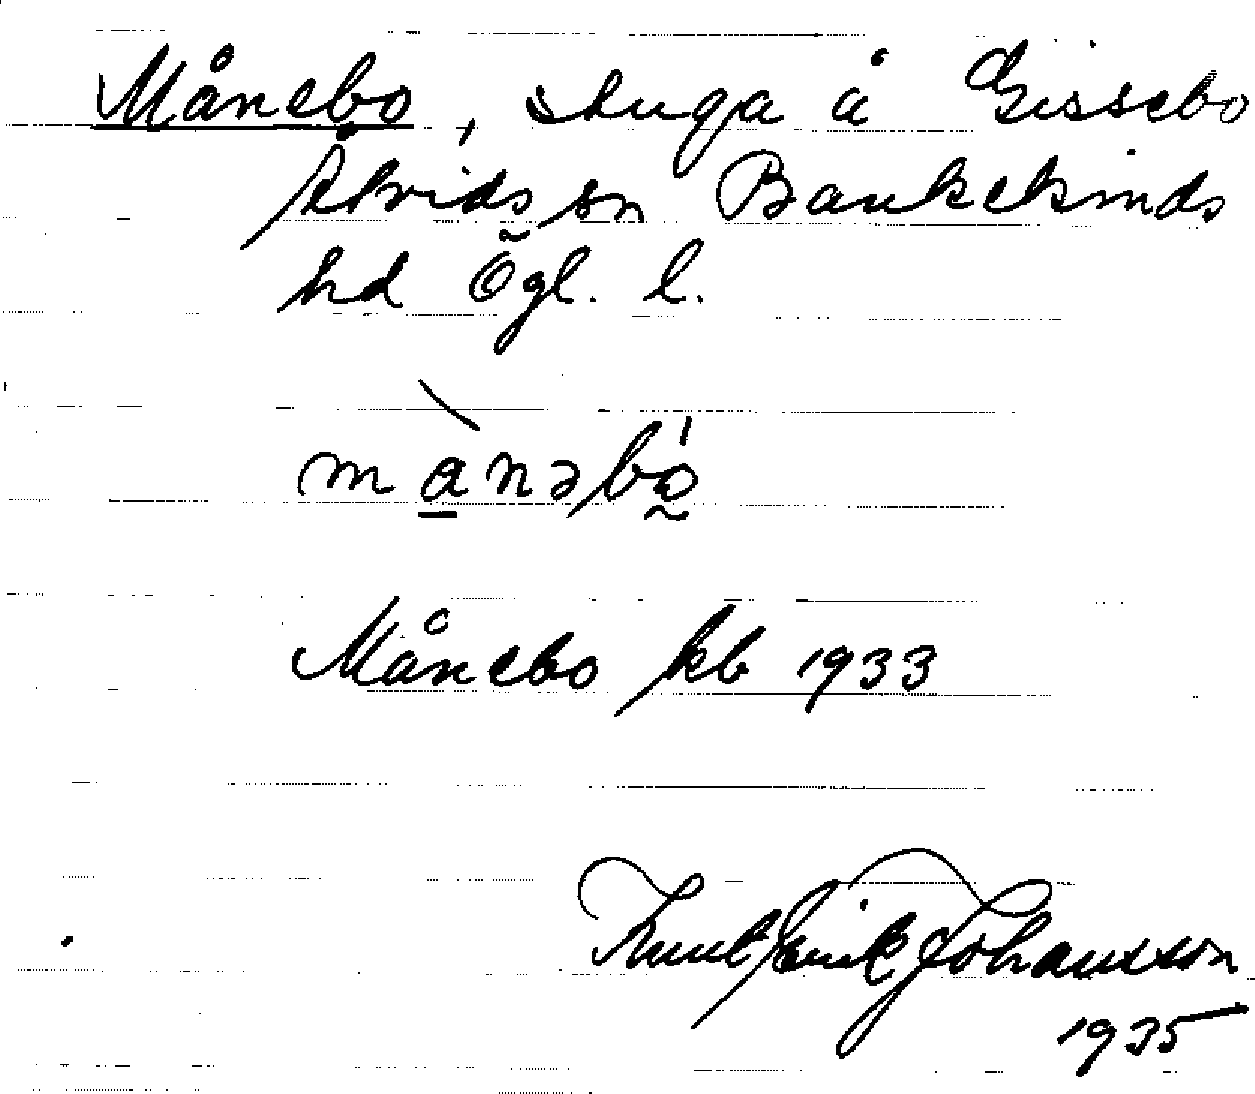 Månebo, stuga å Gissebo
Åtvids sn Bankekinds
hd Ögl. l.
mànəbó
Månebo kb 1933
Knut Erik Johansson
1935